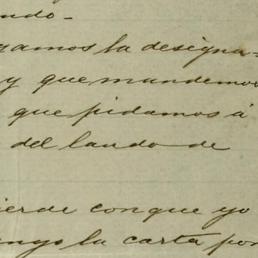 ndo-
gamos la designa-
y que mandemos
que pidamos á
del laudo de
ierde conque yo
engo la carta por